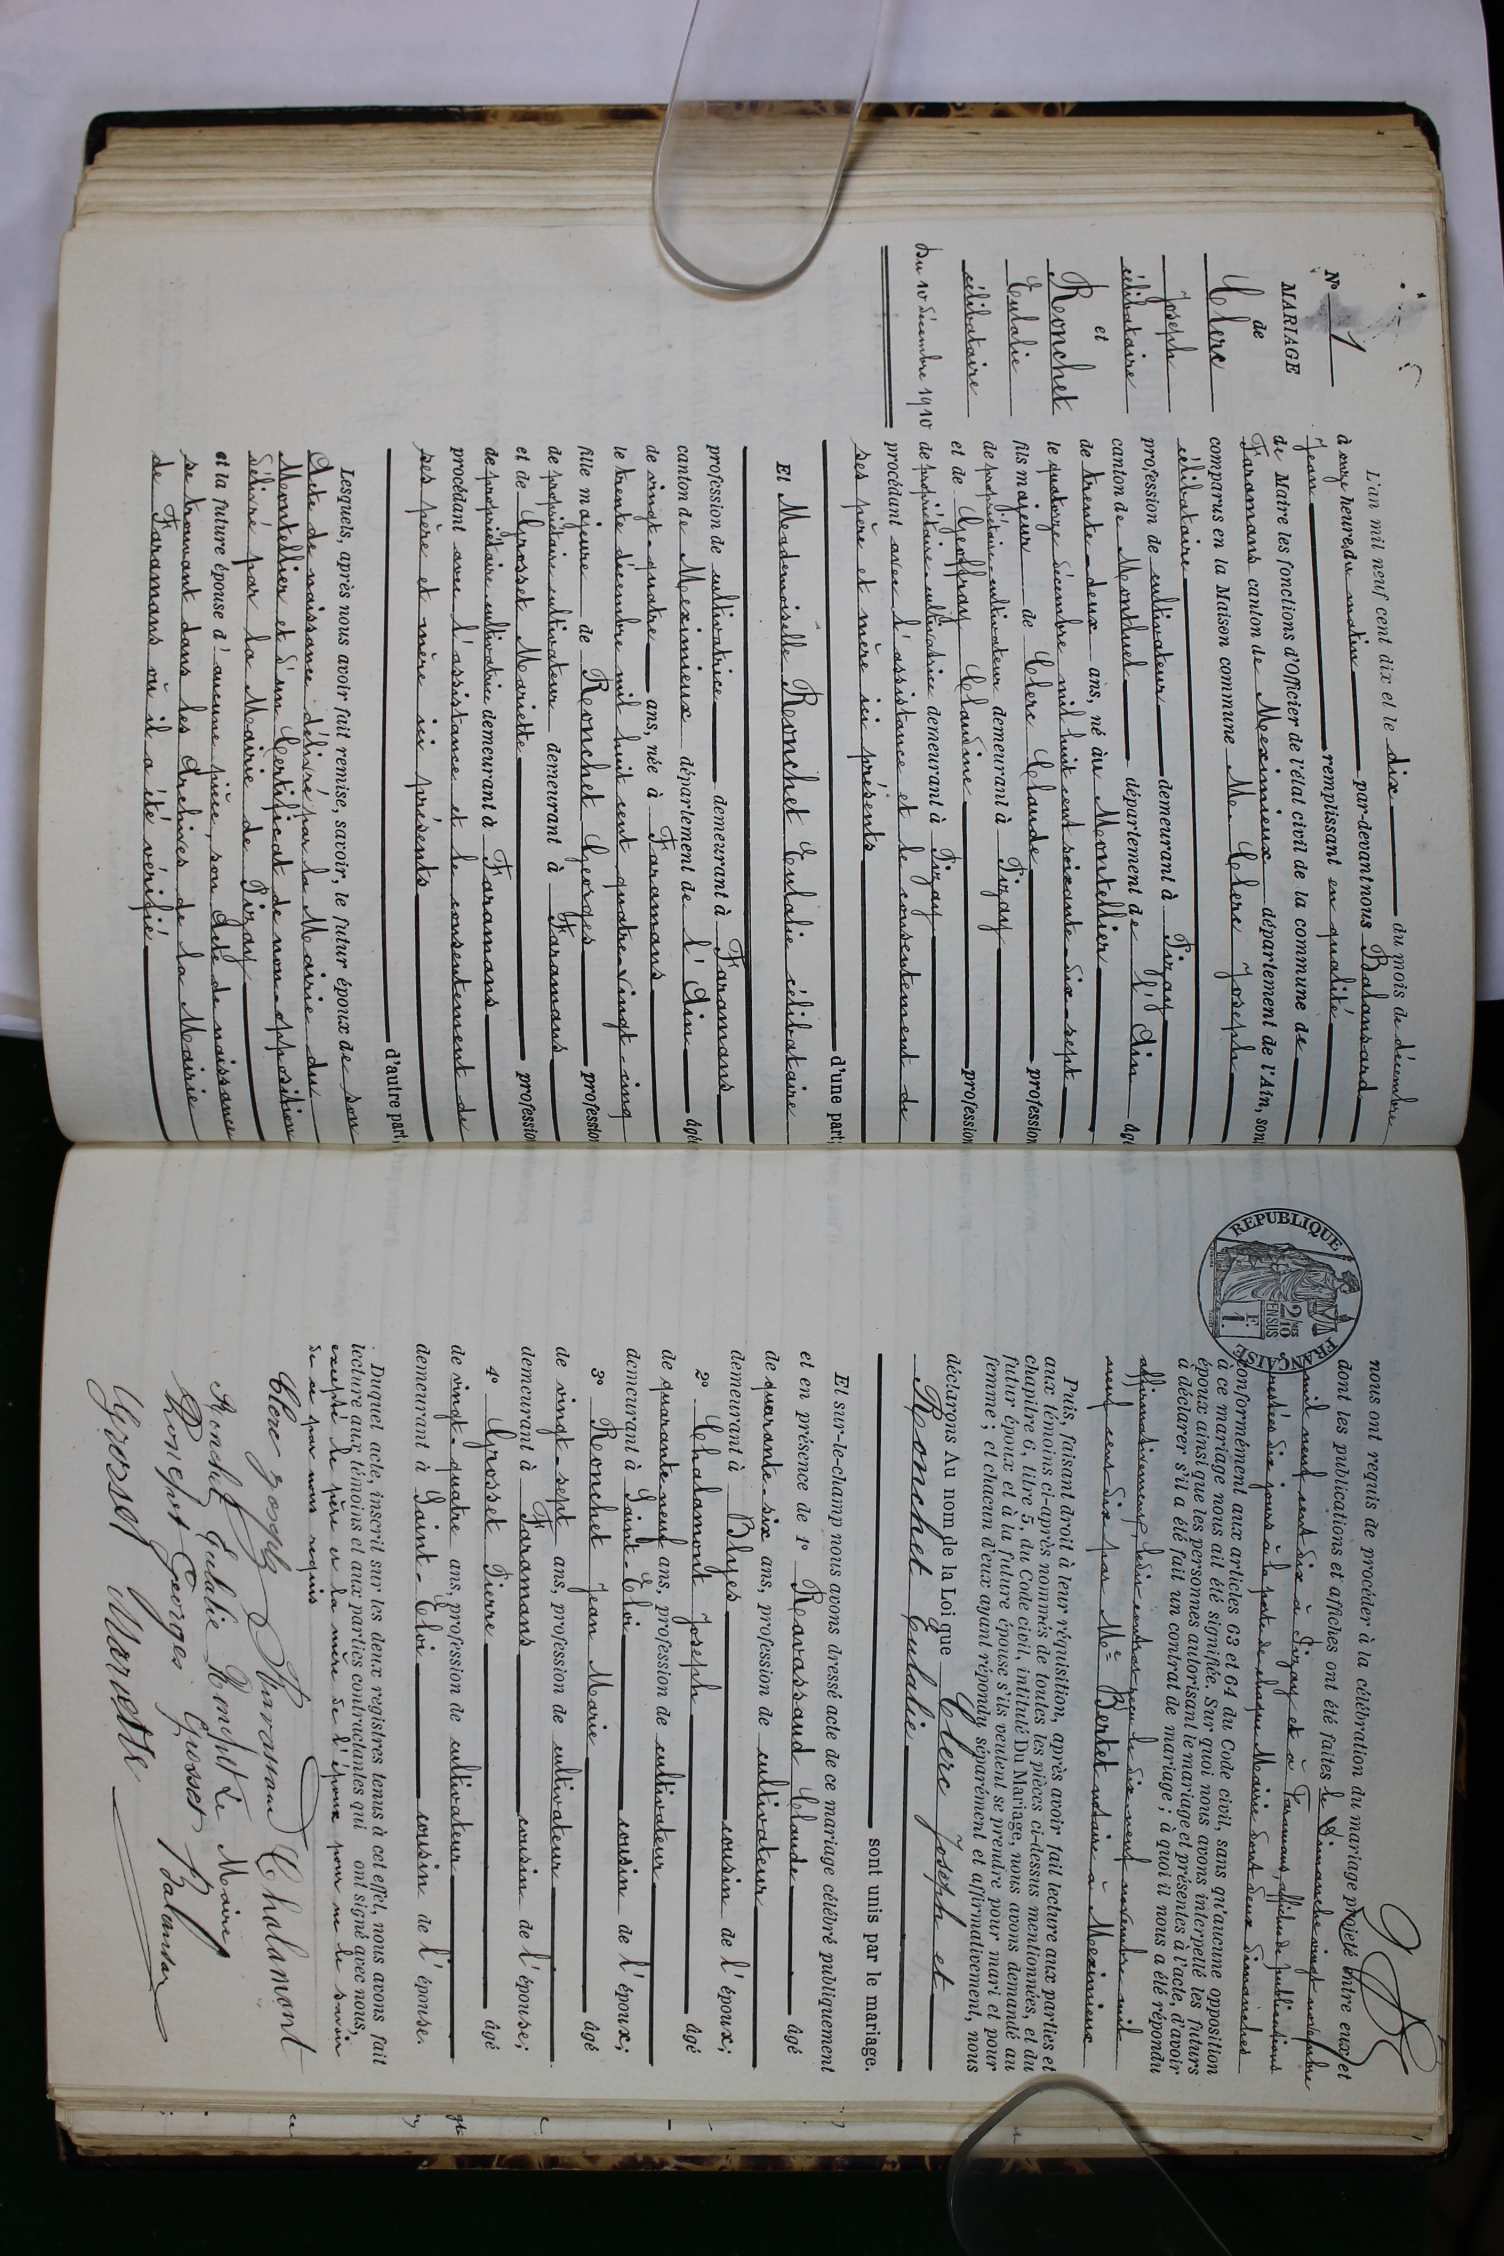 N° 1
MARIAGE
de
Clerc
Joseph
célibataire
et
Ronchet
Eulalie
célibataire
Du 10 décembre 1910
L'an mil neuf cent dix et le dix du mois de décembre
à onze heures du matin par-devant nous Balansard
Jean remplissant en qualité
de Maire les fonctions d'Officier de l'état civil de la commune de
Faramans canton de Meximieux département de l'Ain, sont
comparus en la Maison commune M. Clerc Joseph
célibataire
profession de cultivateur demeurant à Pizay
canton de Montluel département de l'Ain âgé
de trente-deux ans, né au Montellier
le quatorze décembre mil huit cent soixante-dix-sept
fils majeur de Clerc Claude profession
de propriétaire-cultivateur demeurant à Pizay
et de Geoffray Claudine profession
de propriétaire-cultivatrice demeurant à Pizay
procédant avec l'assistance et le consentement de
ses père et mère ici présents
d'une part;
Et Mademoiselle Ronchet Eulalie célibataire
profession de cultivatrice demeurant à Faramans
canton de Meximieux département de l'Ain âgé
de vingt-quatre ans, née à Faramans
le trente décembre mil huit cent quatre-vingt-cinq
fille majeure de Ronchet Georges profession
de propriétaire cultivateur demeurant à Faramans
et de Grosset Mariette profession
de propriétaire cultivatrice demeurant à Faramans
procédant avec l'assistance et le consentement de
ses père et mère ici présents
d'autre part,
Lesquels, après nous avoir fait remise, savoir, le futur époux de son
Acte de naissance délivré par la Mairie du
Montellier et d'un Certificat de non-opposition
délivré par la Mairie de Pizay
et la future épouse d'aucune pièce, son acte de naissance
se trouvant dans les Archives de la Mairie
de Faramans où il a été vérifié
REPUBLIQUE FRANÇAISE
2/10 EN SUS
1 F.
nous ont requis de procéder à la célébration du mariage projeté entre eux et
dont les publications et affiches ont été faites le dimanche vingt novembre
mil neuf cent dix à Pizay et à Faramans, affiches de publications
restées dix jours à la porte de chaque Mairie dont deux dimanches
conformément aux articles 63 et 64 du Code civil, sans qu'aucune opposition
à ce mariage nous ait été signifiée. Sur quoi nous avons interpellé les futurs
époux ainsi que les personnes autorisant le mariage et présentes à l'acte, d'avoir
à déclarer s'il a été fait un contrat de mariage ; à quoi il nous a été répondu
affirmativement, ledit contrat reçu le dix-neuf novembre mil
neuf cent dix par Me Bertet notaire à Meximieux
Puis, faisant droit à leur réquisition, après avoir fait lecture aux parties et
aux témoins ci-après nommés de toutes les pièces ci-dessus mentionnées, et du
chapitre 6, titre 5, du Code civil, intitulé Du Mariage, nous avons demandé au
futur époux et à la future épouse s'ils veulent se prendre pour mari et pour
femme ; et chacun d'eux ayant répondu séparément et affirmativement, nous
déclarons Au nom de la Loi que Clerc Joseph et
Ronchet Eulalie
sont unis par le mariage.
Et sur-le-champ nous avons dressé acte de ce mariage célébré publiquement
et en présence de 1° Ravassaud Claude âgé
de quarante-six ans, profession de cultivateur
demeurant à Blyes cousin de l'époux;
2° Chalamont Joseph âgé
de quarante neuf ans, profession de cultivateur
demeurant à Saint-Eloi cousin de l'époux;
3° Ronchet Jean Marie âgé
de vingt-sept ans, profession de cultivateur
demeurant à Faramans cousin de l'épouse;
4° Grosset Pierre âgé
de vingt-quatre ans, profession de cultivateur
demeurant à Saint-Eloi cousin de l'épouse.
Duquel acte, inscrit sur les deux registres tenus à cet effet, nous avons fait
lecture aux témoins et aux parties contractantes qui ont signé avec nous,
excepté le père et la mère de l'époux pour ne le savoir
de ce par nous requis
Clerc Joseph Ravassaud Chalamont
Ronchet Eulalie Le Maire
Ronchet Georges Grosset Balansard
Grosset Mariette